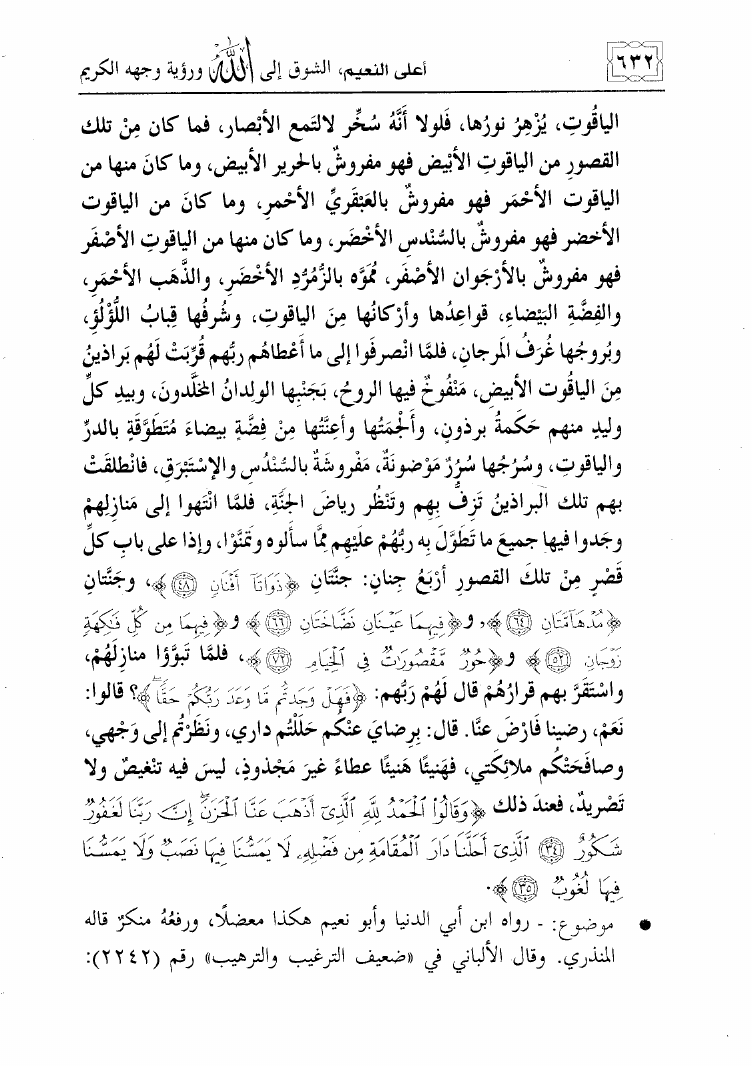 ٦٣٢
أعلى النعيم، الشوق إلى الله ورؤية وجهه الكريم
الياقُوتِ، يُزْهِرُ نورُها، فَلولا أَنَّهُ سُخِّر لالتَمع الأبْصار، فما كان مِنْ تلك
القصورِ من الياقوتِ الأبْيض فهو مفروشٌ بالحرير الأبيض، وما كانَ منها من
الياقوت الأحْمَر فهو مفروشٌ بالعَبْقَريِّ الأحْمرِ، وما كانَ من الياقوت
الأخضر فهو مفروشٌ بالسُّندس الأخْضَر، وما كان منها من الياقوتِ الأصْفَر
فهو مفروشٌ بالأرْجَوان الأصْفَر، مُمَوَّه بالزُّمُرُّدِ الأخْضَرِ، والذَّهَب الأحْمَرِ،
والفِضَّةِ البَيْضاءِ، قواعِدُها وأرْكانُها مِنَ الياقوتِ، وشُرفُها قِبابُ اللُّؤْلُؤِ،
وبُروجُها غُرَفُ المرجانِ، فلمَّا انْصرفُوا إلى ما أَعْطاهُم ربُّهم قُرِّبَتْ لَهُم بَراذينُ
مِنَ الياقُوت الأبيض، مَنْفُوخٌ فيها الروحُ، بَجَنْبِها الوِلدانُ المخَلَّدونَ، وبيدِ كلِّ
وليدٍ منهم حَكَمةُ برذونٍ، وأَلجِمَتُها وأعنَّتُها مِنْ فضَّةٍ بيضاءَ مُتَطَوَّقَةٍ بالدرِّ
والياقوتِ، وسُرُجُها سُرُرٌ مَوْضونَةٌ، مَفْروشَةٌ بالسُّنْدُسِ والإسْتَبْرَقِ، فانْطلقَتْ
بهم تلك البراذينُ تَزِفُّ بِهِم وتَنْظُر رياضَ الجنَّةِ، فلمَّا انْتَهوا إلى مَنازِلِهِمْ
وجَدوا فيها جميعَ ما تَطوَّلَ بِه ربُّهُمْ علَيْهِم مِمَّا سألوه وتَمَنَّوْا، وإذا على بابِ كلِّ
قَصْرٍ مِنْ تلكَ القصورِ أربَعُ جِنانٍ: جنَّتَانِ ﴿ذَوَاتَآ أَفْنَانٍ ﴿٤٨﴾﴾، وجَنَّتانِ
﴿مُدْهَآمَّتَانِ ﴿٦٤﴾﴾، و﴿فِيهِمَا عَيْنَانِ نَضَّاخَتَانِ ﴿٦٦﴾﴾ و﴿فِيهِمَا مِن كُلِّ فَـٰكِهَةٍ
زَوْجَانِ ﴿٥٢﴾﴾ و﴿حُورٌ مَّقْصُورَٰتٌ فِي ٱلْخِيَامِ ﴿٧٢﴾﴾، فلمَّا تَبوَّؤا منازِلَهُمْ،
واسْتَقرَّ بهم قرارُهُمْ قال لَهُمْ رَبُّهم: ﴿فَهَلْ وَجَدتُّم مَّا وَعَدَ رَبُّكُمْ حَقًّا﴾؟ قالوا:
نَعَمْ، رضينا فَارْضَ عنَّا. قال: بِرِضايَ عنْكُم حَلَلْتُم داري، ونَظَرْتُم إلى وَجْهي،
وصافَحَتْكُم ملائكَتي، فهَنيئًا هَنيئًا عطاءً غيرَ مَجْذوذٍ، ليسَ فيه تنْغيصٌ ولا
تَصْريدٌ، فعندَ ذلك ﴿وَقَالُواْ ٱلْحَمْدُ لِلَّهِ ٱلَّذِىٓ أَذْهَبَ عَنَّا ٱلْحَزَنَ إِنَّ رَبَّنَا لَغَفُورٌ
شَكُورٌ ﴿٣٤﴾ ٱلَّذِىٓ أَحَلَّنَا دَارَ ٱلْمُقَامَةِ مِن فَضْلِهِۦ لَا يَمَسُّنَا فِيهَا نَصَبٌ وَلَا يَمَسُّنَا
فِيهَا لُغُوبٌ ﴿٣٥﴾﴾.
● موضوع: - رواه ابن أبي الدنيا وأبو نعيم هكذا معضلًا، ورفعُهُ منكرٌ قاله
المنذري. وقال الألباني في «ضعيف الترغيب والترهيب» رقم (٢٢٤٢):